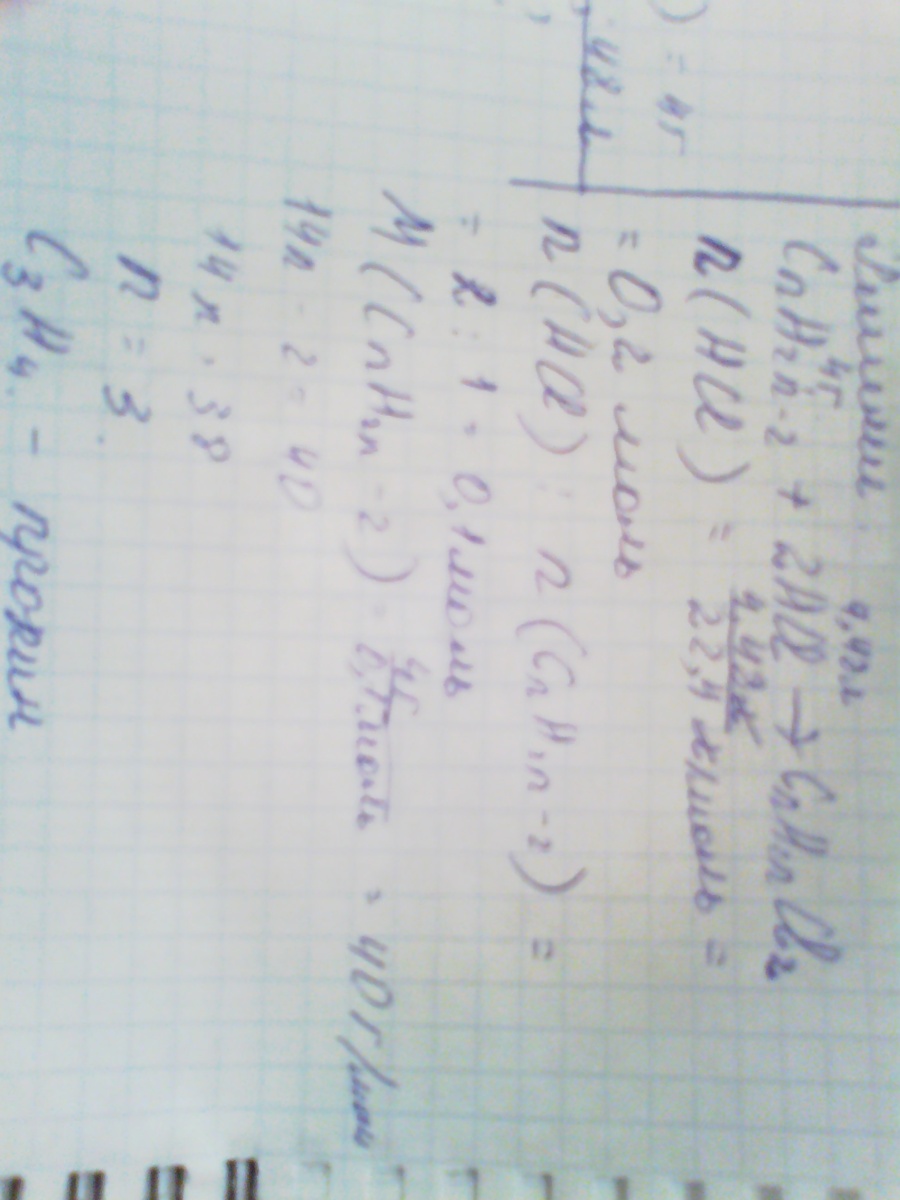 ) = 4г
48л
4г 4,48л
CnH2n-2 + 2HCl → CnH2nCl2
n(HCl) = 4,48л / 22,4 л/моль =
= 0,2 моль
n(HCl) : n(CnH2n-2) =
= 2 : 1 = 0,1 моль
M(CnH2n-2) = 4г / 0,1 моль = 40 г/моль
14n - 2 = 40
14n = 38
n = 3.
C3H4. - пропин